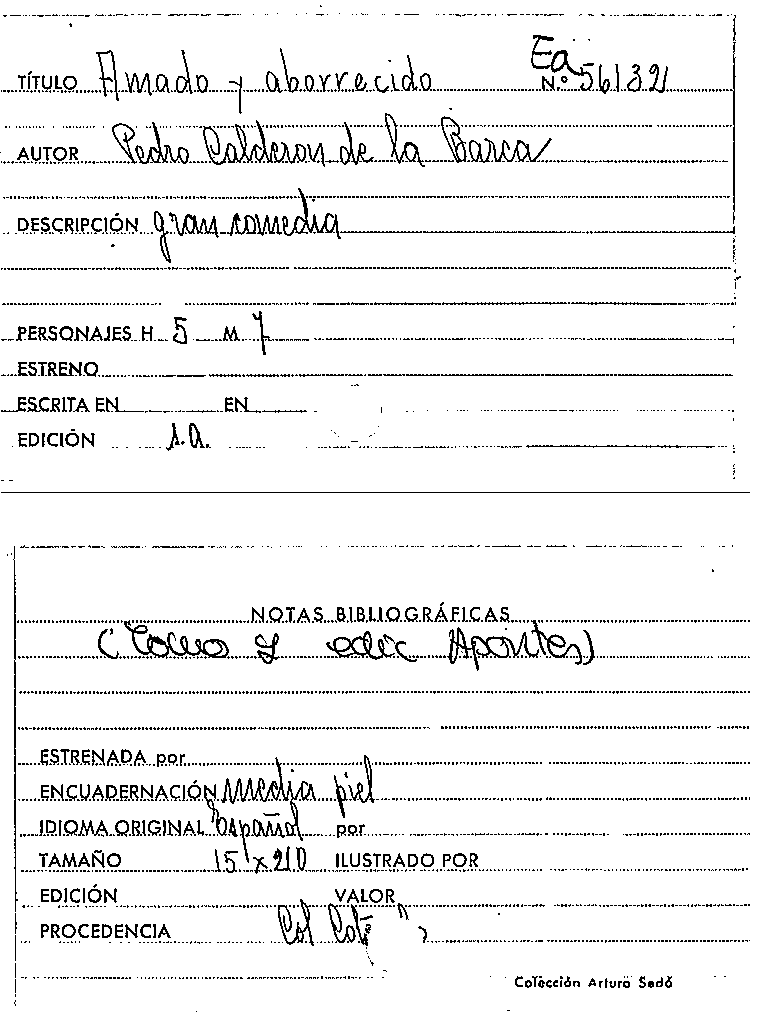 Ea
TÍTULO Amado y aborrecido N.º 561321
AUTOR Pedro Calderon de la Barca
DESCRIPCIÓN gran comedia
PERSONAJES H 5 M 7
ESTRENO
ESCRITA EN EN
EDICIÓN s.a.
NOTAS BIBLIOGRÁFICAS
(Tomo edic Apontes)
ESTRENADA por
ENCUADERNACIÓN media piel
IDIOMA ORIGINAL Español por
TAMAÑO 15'x210 ILUSTRADO POR
EDICIÓN VALOR
PROCEDENCIA Col
Colección Arturo Sedó